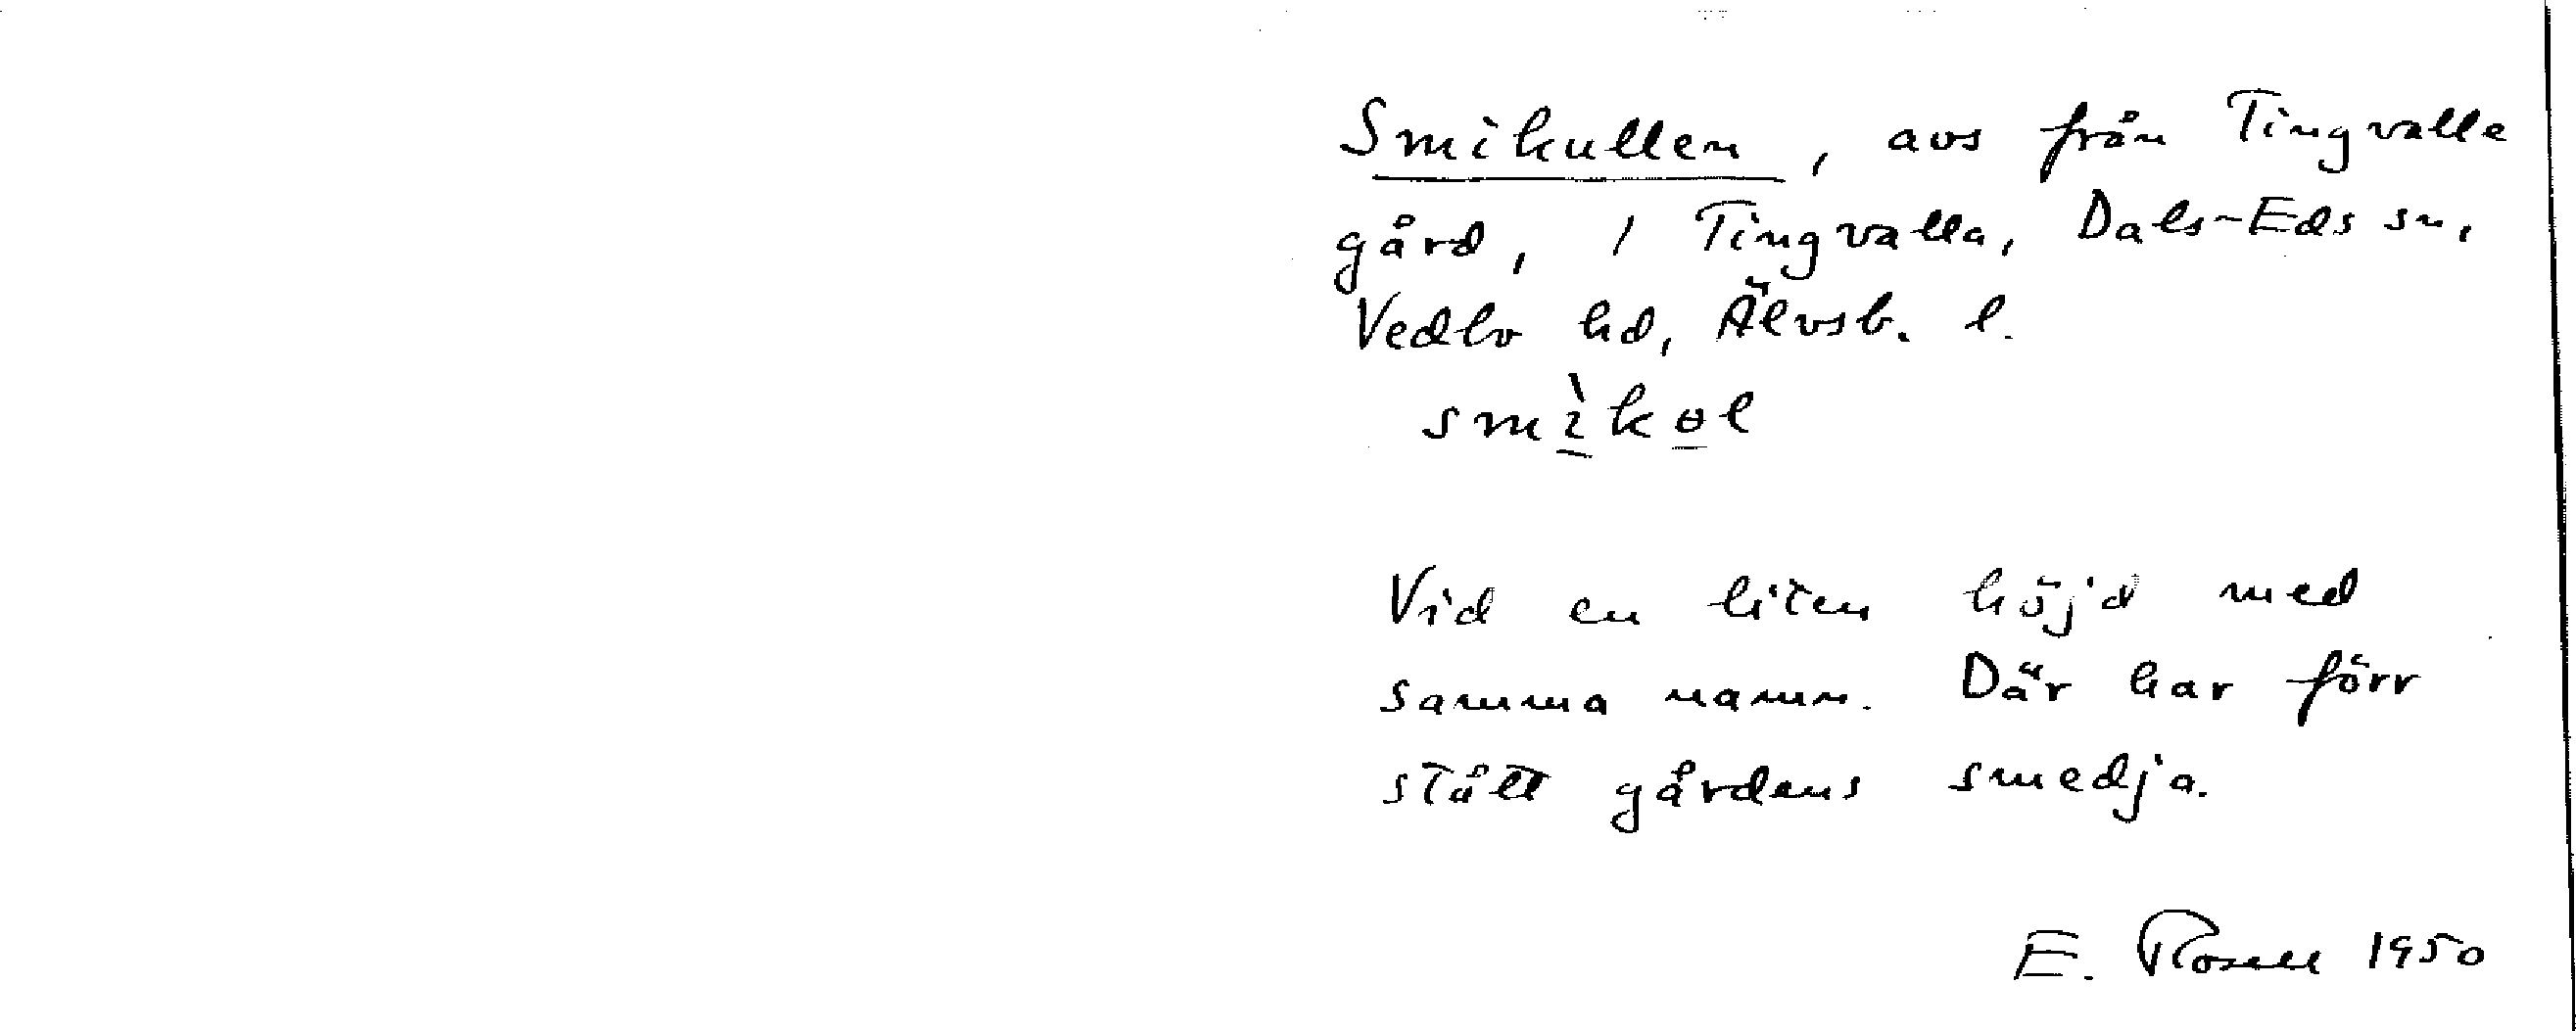 Smikullen, avs från Tingvalla
gård, 1 Tingvalla, Dals-Eds sn,
Vedbo hd, Älvsb. l.
smɩ̀kɵl
Vid en liten höjd med
samma namn. Där har förr
stått gårdens smedja.
E. Rosell 1950